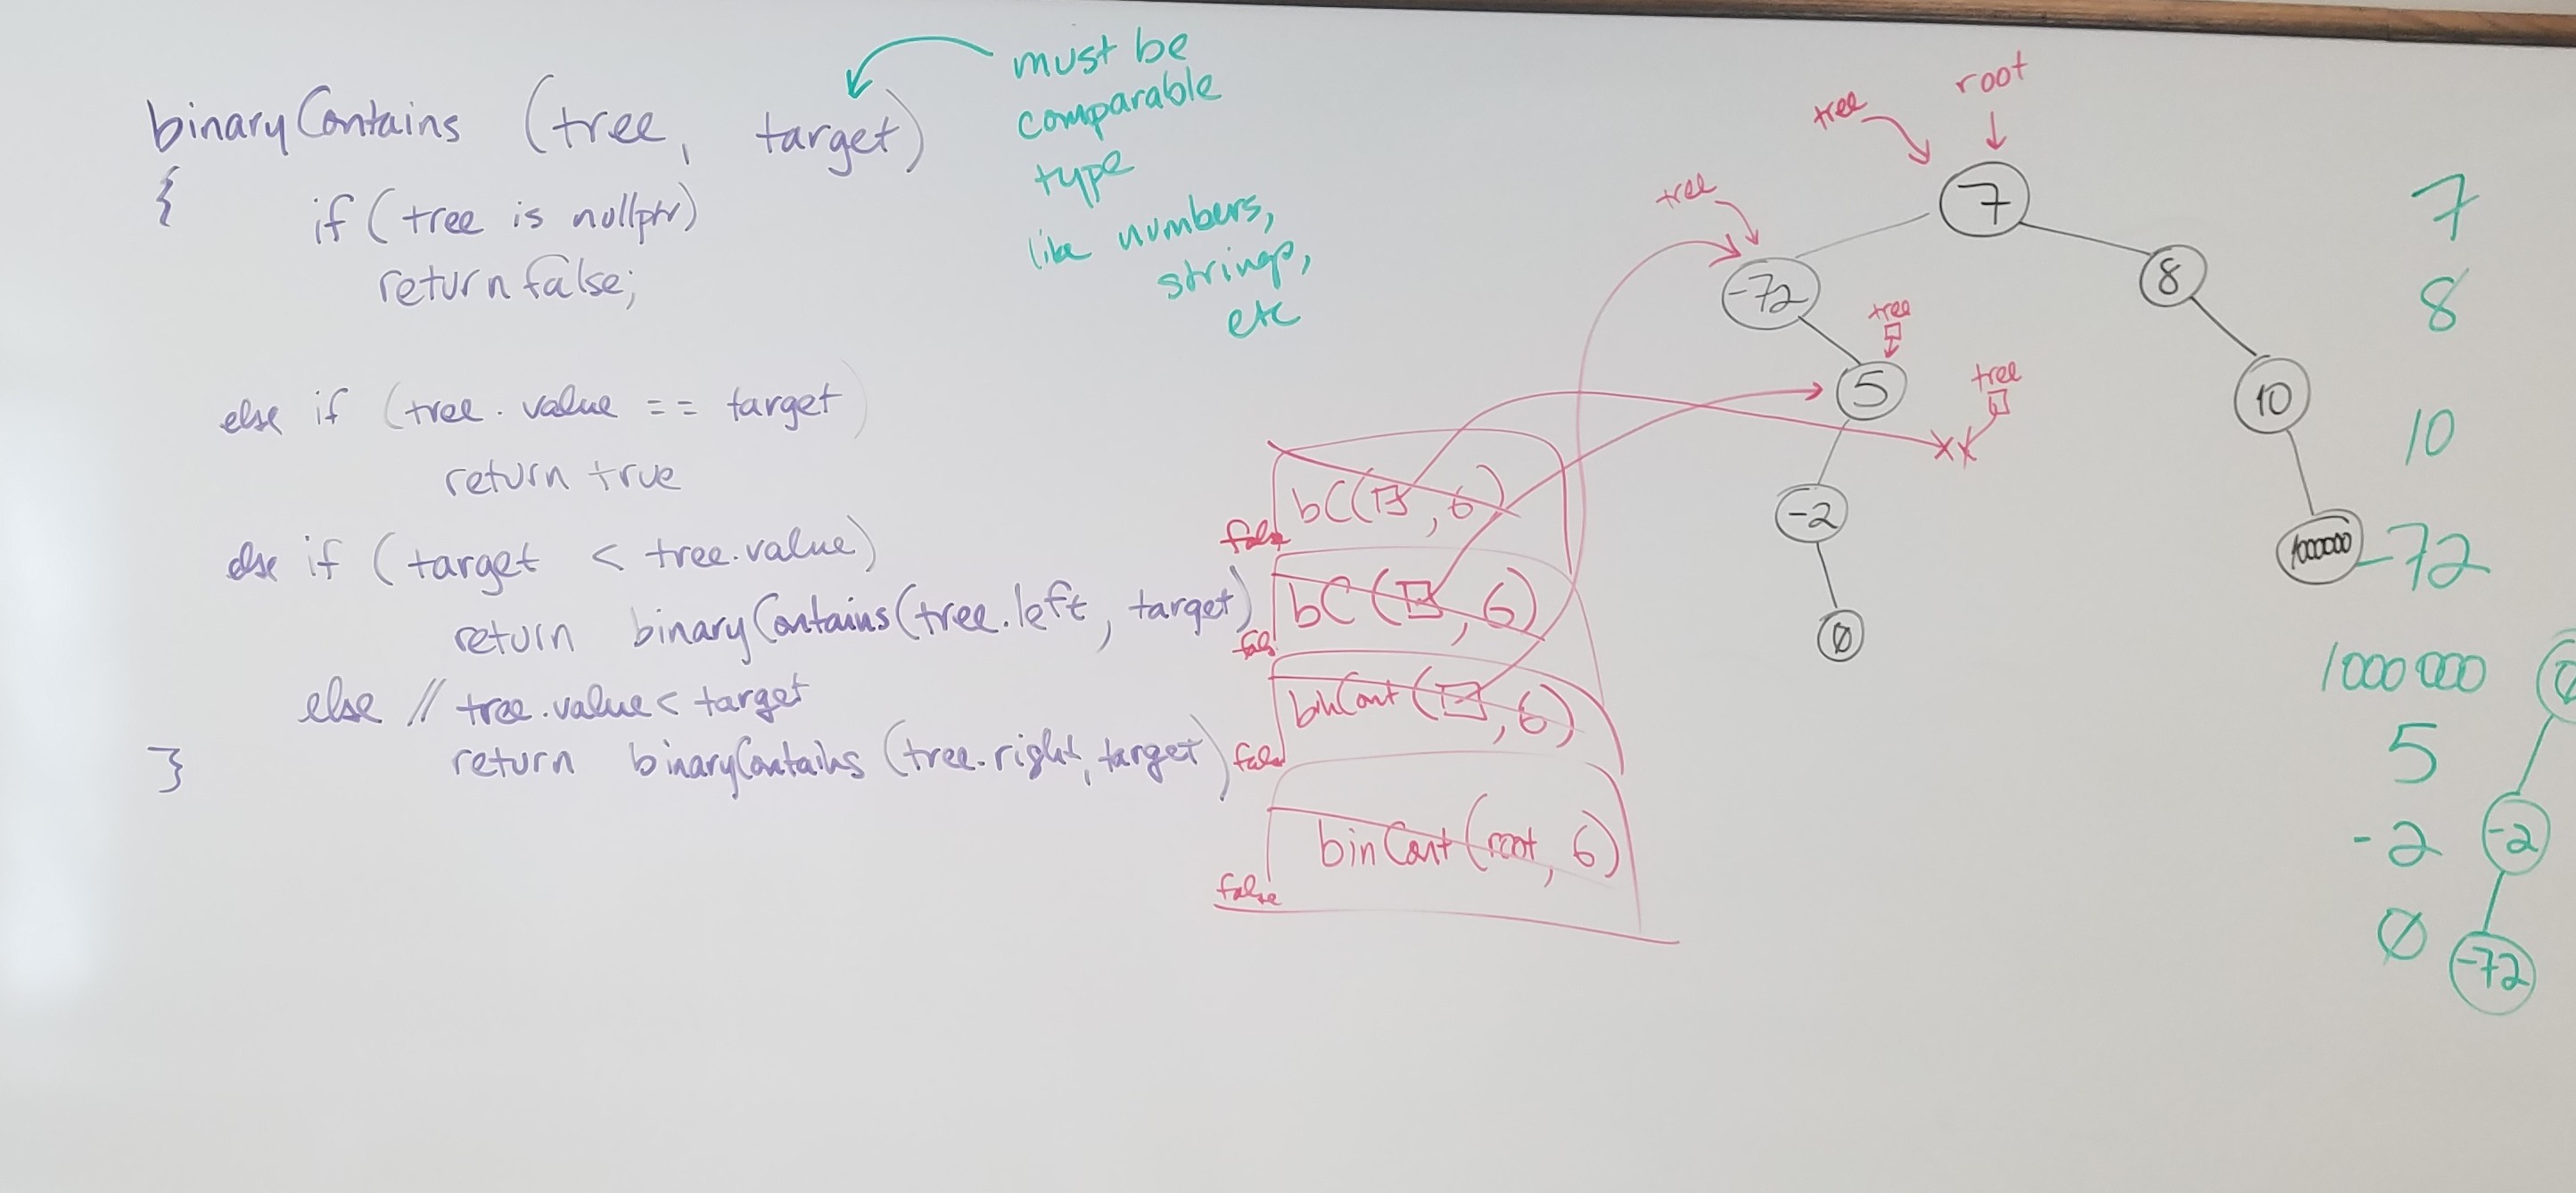 binaryContains (tree, target)
{
if (tree is nullptr)
return false;
else if (tree.value == target)
return true
else if (target < tree.value)
return binaryContains(tree.left, target)
else // tree.value < target
return binaryContains (tree.right, target)
}
must be
comparable
type
like numbers,
strings,
etc
bC( , 6)
false
bC( , 6)
fals
binCont( , 6)
false
binCont(root, 6)
false
root
tree
7
tree
-72
8
tree
5
tree
10
-2
1000000
0
7
8
10
-72
1000000
5
-2
0
-2
-72